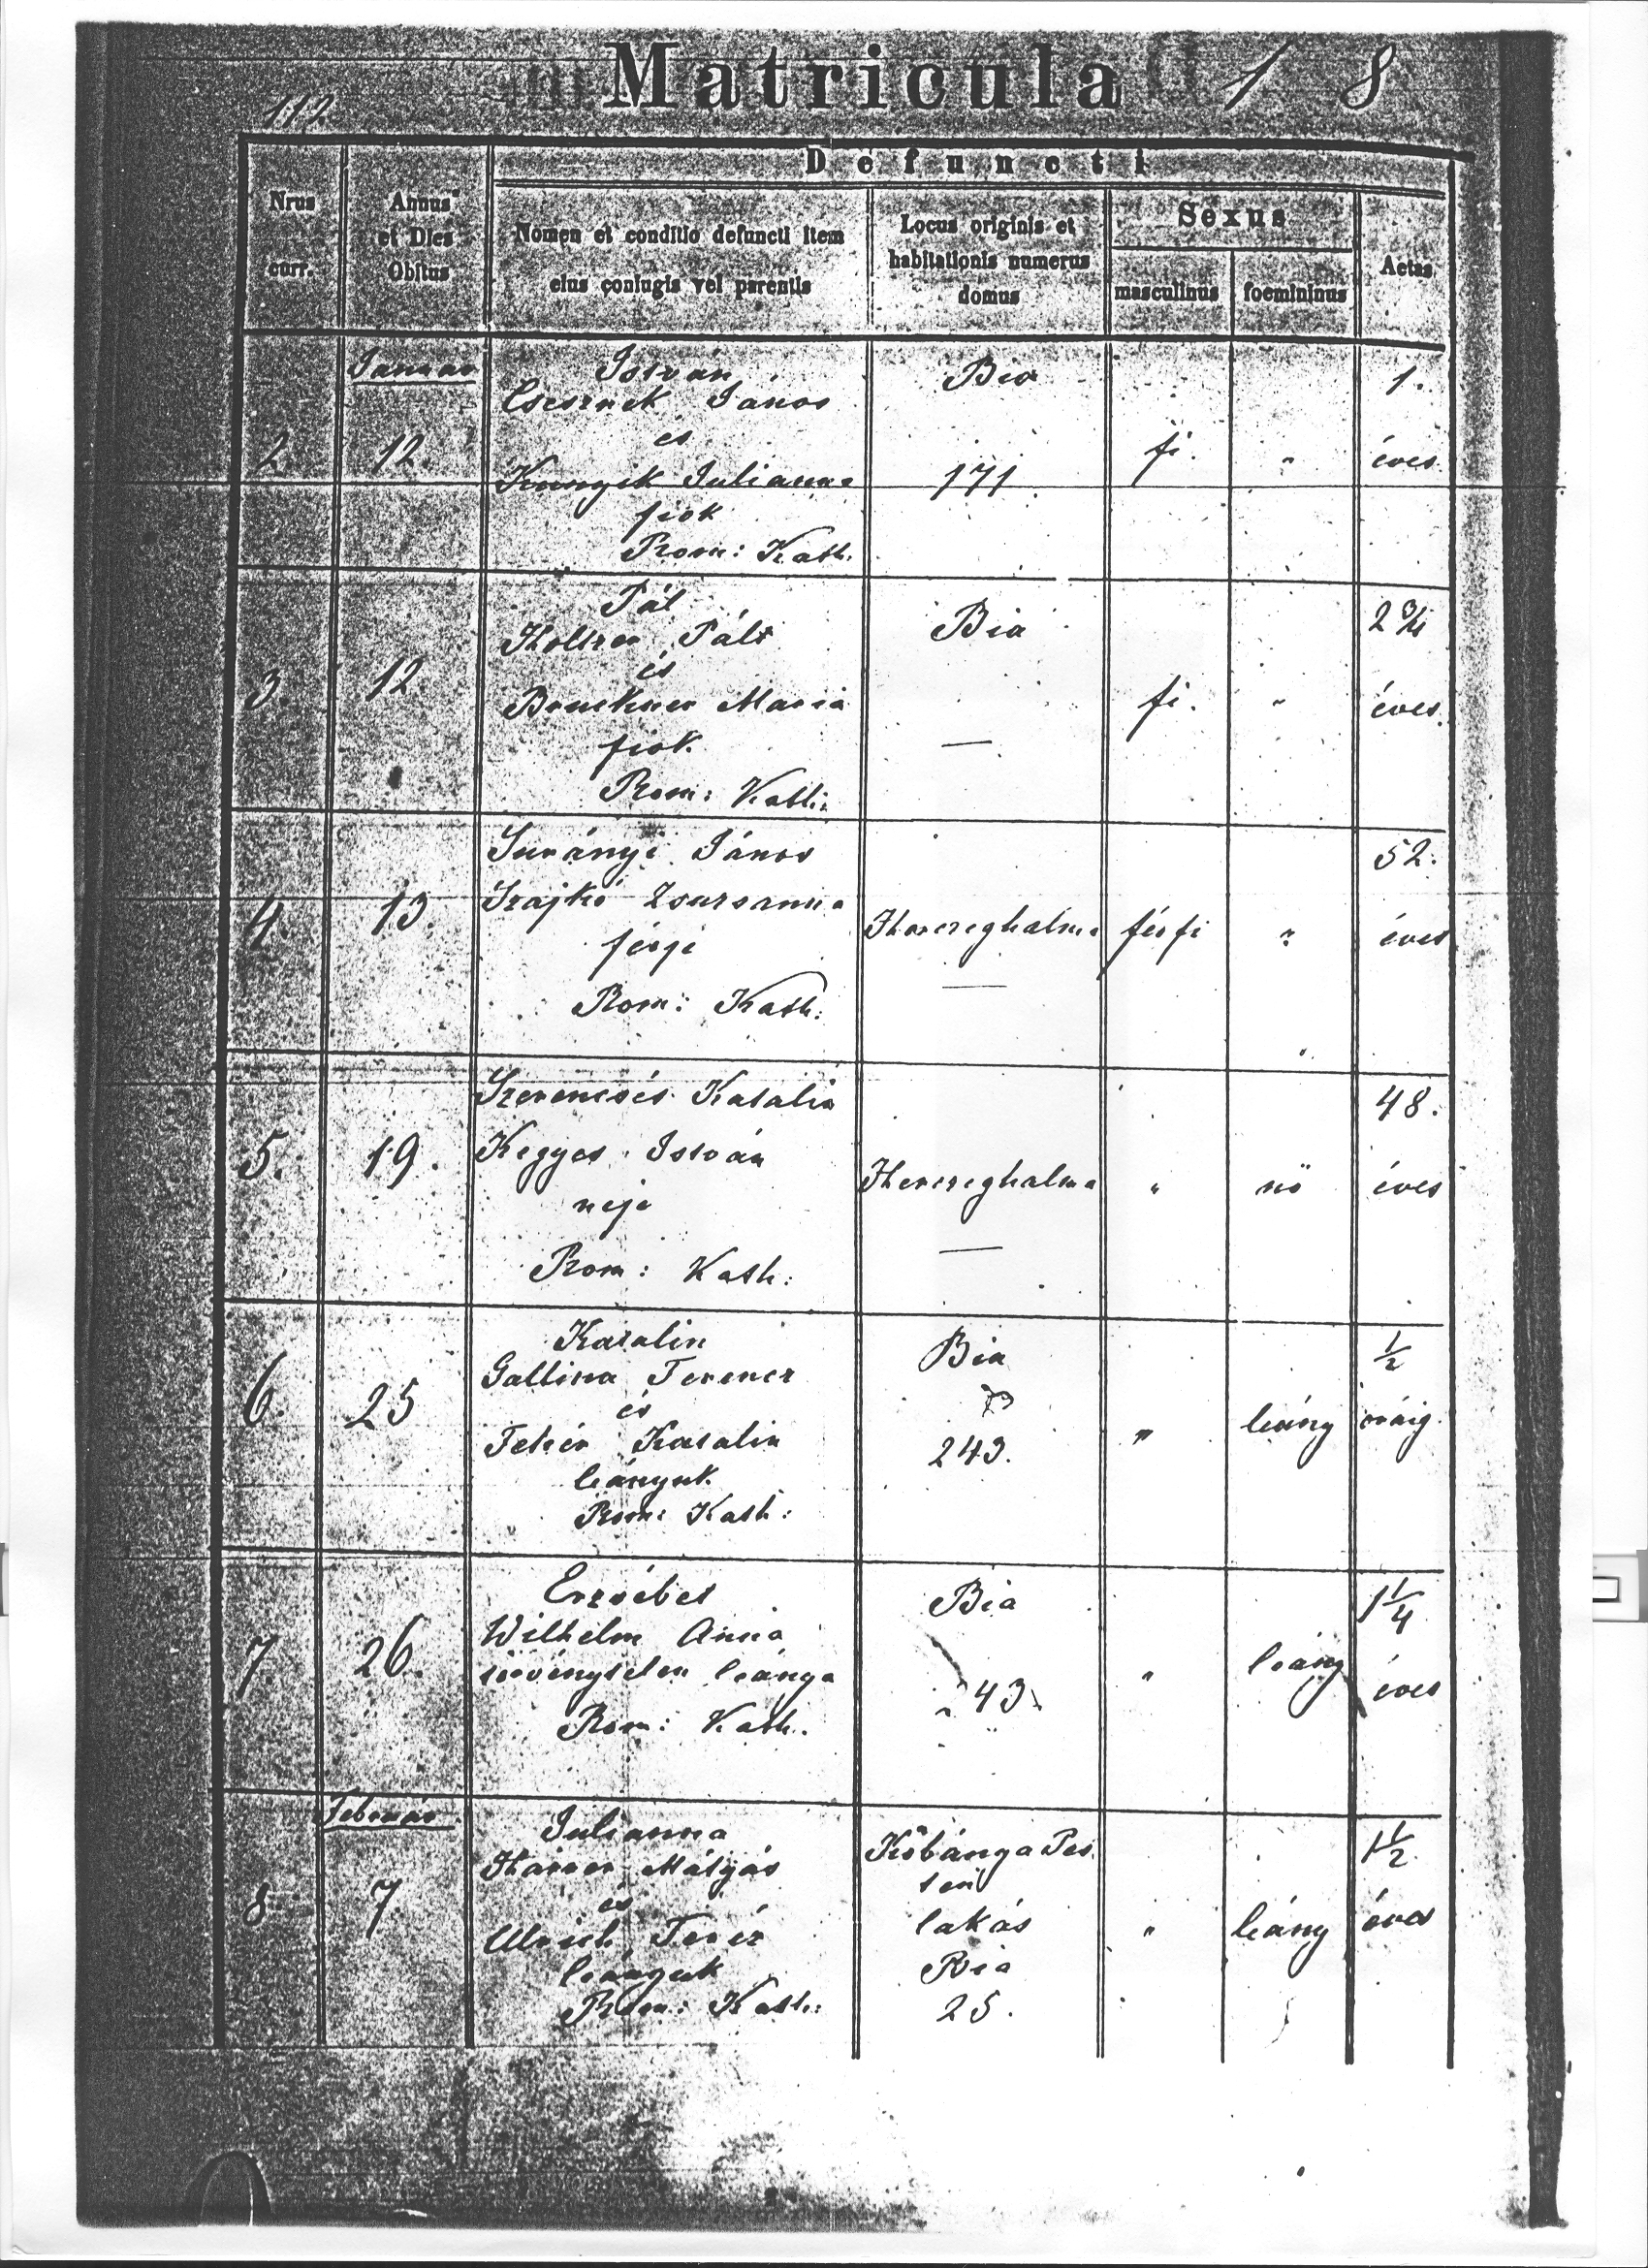 Matricula 1 8
112
Defuncti
Nrus
curr.
Annus
et Dies
Obitus
Nomen et conditio defuncti item
eius coniugis vel parentis
Locus originis et
habitationis numerus
domus
Sexus
masculinus
foemininus
Aetas
Január
2
12.
István
Csesznek János
es
Julianna
fiok
Rom: Kath.
Bia
171.
fi.
"
1.
éves
3.
12
Pál
Holtzer Pál
és
Bruckner Maria
fiok.
Rom: Kath:
Bia
—
fi.
"
2 3/4
éves.
4.
13.
Surányi János
Szajkó Zsuzsanna
férje
Rom: Kath:
Herczeghalma
—
férfi
"
52.
éves
5.
19.
Szerencsés Katalin
Kegyes István
neje
Rom: Kath:
Herczeghalma
—
"
nö
48.
éves
6.
25
Katalin
Gallina Ferencz
és
Fehér Katalin
leányuk.
Rom: Kath:
Bia
243.
"
leány
1/2
oráig.
7.
26.
Erzsébet
Wilhelm Anna
törvénytelen leánya
Rom: Kath.
Bia
43
"
leány
1 1/4
éves
Február
8
7
Julianna
Mátyás
és
Ulrich Teréz
leányuk
Rom: Kath:
Köbánya Pes
ten
lakás
Bia
25.
"
leány
1 1/2
éves